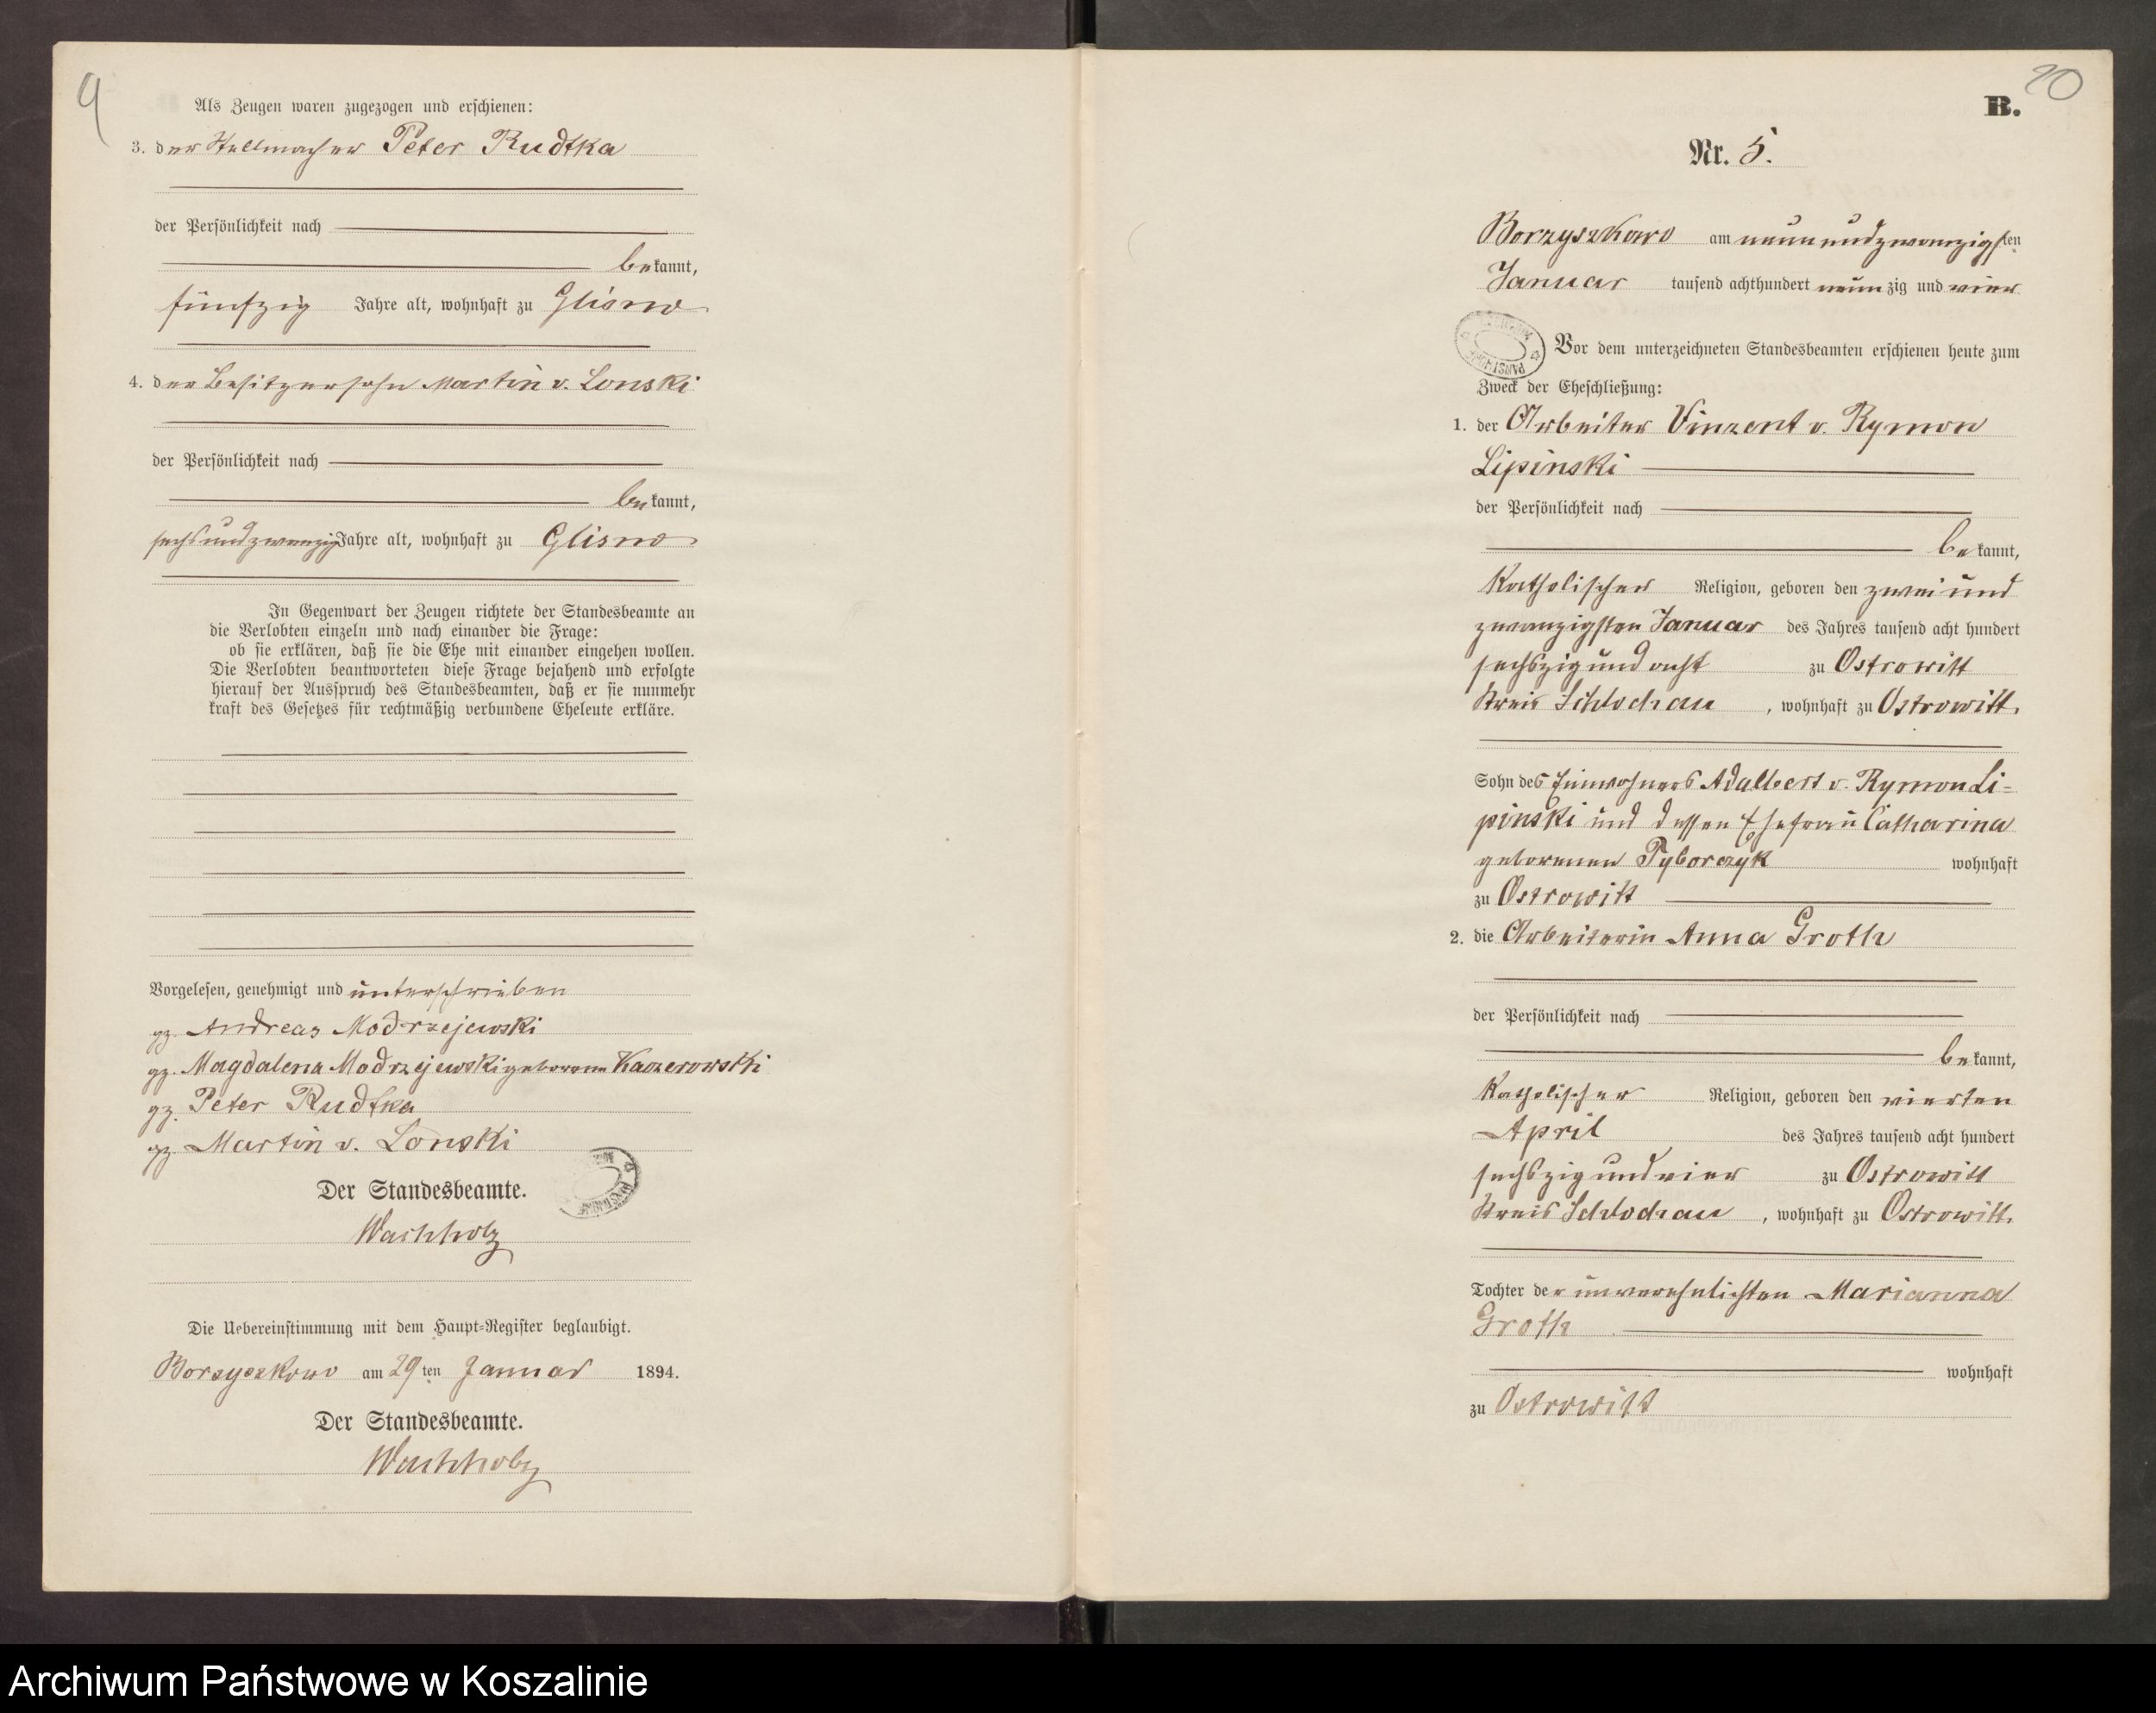 9
Als Zeugen waren zugezogen und erschienen:
3. der Stellmacher Peter Rudtka
der Persönlichkeit nach
bekannt,
fünfzig Jahre alt, wohnhaft zu Glisno
4. der Besitzersohn Martin v. Lonski
der Persönlichkeit nach
bekannt,
sechsundzwanzig Jahre alt, wohnhaft zu Glisno
In Gegenwart der Zeugen richtete der Standesbeamte an
die Verlobten einzeln und nach einander die Frage:
ob sie erklären, daß sie die Ehe mit einander eingehen wollen.
Die Verlobten beantworteten diese Frage bejahend und erfolgte
hierauf der Ausspruch des Standesbeamten, daß er sie nunmehr
kraft des Gesetzes für rechtmäßig verbundene Eheleute erkläre.
Vorgelesen, genehmigt und unterschrieben
gz. Andreas Modrzejewski
gz. Magdalena Modrzejewski geborene Kaczerowski
gz. Peter Rudtka
gz. Martin v. Lonski
Der Standesbeamte.
Wachholz
Die Uebereinstimmung mit dem Haupt-Register beglaubigt.
Borzyszkowo am 29ten Januar 1894.
Der Standesbeamte.
Wachholz
20
B.
Nr. 5.
Borzyszkowo am neunundzwanzigsten
Januar tausend achthundert neunzig und vier
Vor dem unterzeichneten Standesbeamten erschienen heute zum
Zweck der Eheschließung:
1. der Arbeiter Vinzent v. Rymon
Lipinski
der Persönlichkeit nach
bekannt,
Katholischer Religion, geboren den zwei und
zwanzigsten Januar des Jahres tausend acht hundert
sechszig und acht zu Ostrowitt
Kreis Schlochau, wohnhaft zu Ostrowitt.
Sohn des Einwohners Adalbert v. Rymon Li=
pinski und dessen Ehefrau Catharina
geborenen Pyborczyk wohnhaft
zu Ostrowitt
2. die Arbeiterin Anna Groth
der Persönlichkeit nach
bekannt,
Katholischer Religion, geboren den vierten
April des Jahres tausend acht hundert
sechszig und vier zu Ostrowitt
Kreis Schlochau, wohnhaft zu Ostrowitt.
Tochter der unverehelichten Marianna
Groth
wohnhaft
zu Ostrowitt
Archiwum Państwowe w Koszalinie